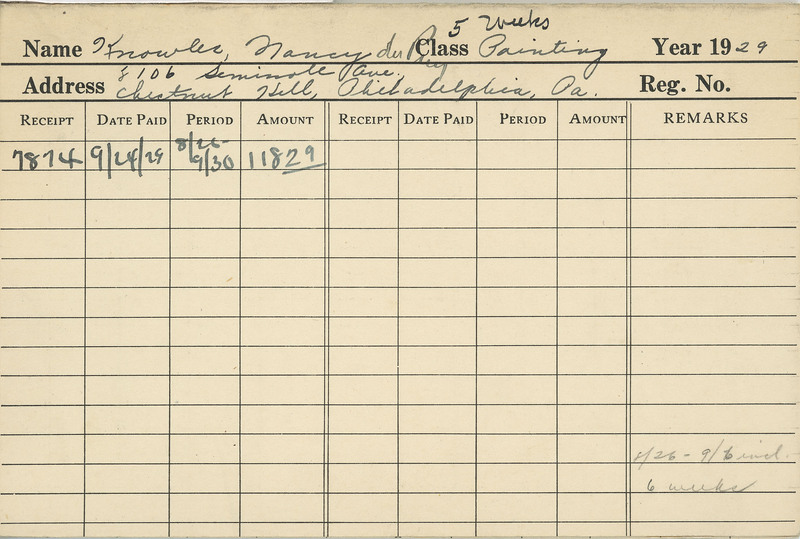 5 Weeks
Name Knowles, Nancy du Puy Class Painting Year 1929
Address 8106 Seminole Ave,
Chestnut Hill, Philadelphia, Pa. Reg. No.
RECEIPT DATE PAID PERIOD AMOUNT RECEIPT DATE PAID PERIOD AMOUNT REMARKS
8/26-
7874 9/24/29 9/30 118 29
8/26 - 9/6 incl.
6 weeks